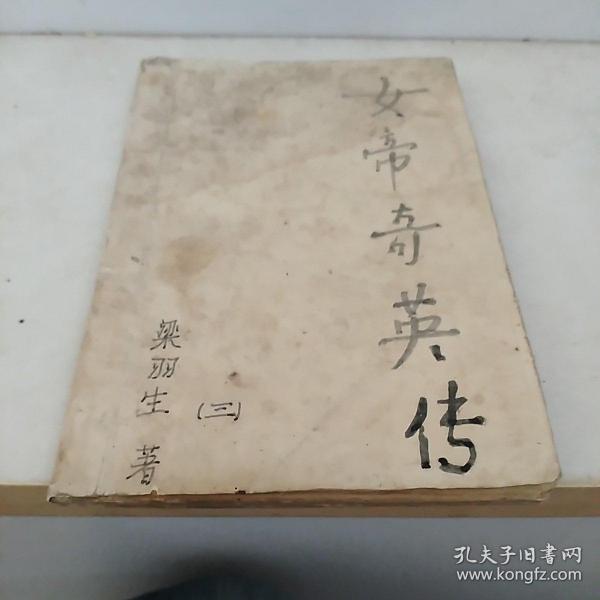 女帝奇英传
(三)
梁羽生 著
孔夫子旧书网
www.kongfz.com